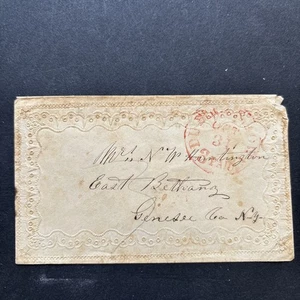 Mrs N W Huntington
East Bethany
Genesee Co N.Y.